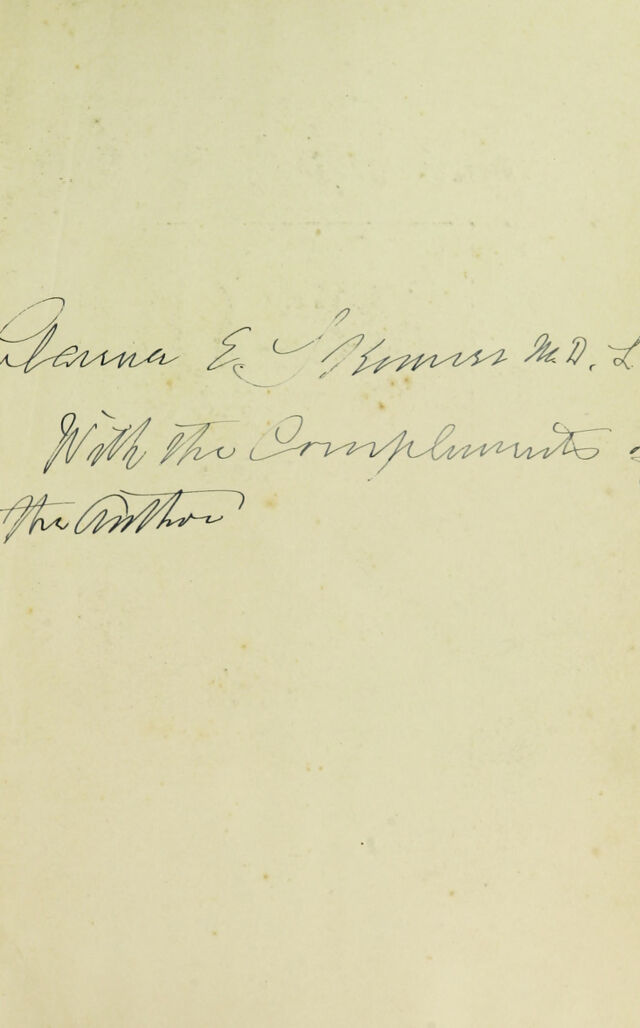 E. Skinner M.D. L
With the Compliments
the Author